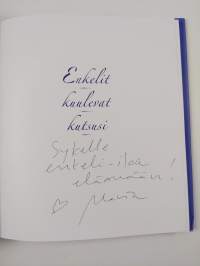 Enkelit
kuulevat
kutsusi
enkeli-iloa
elämääsi!
♡ Maria